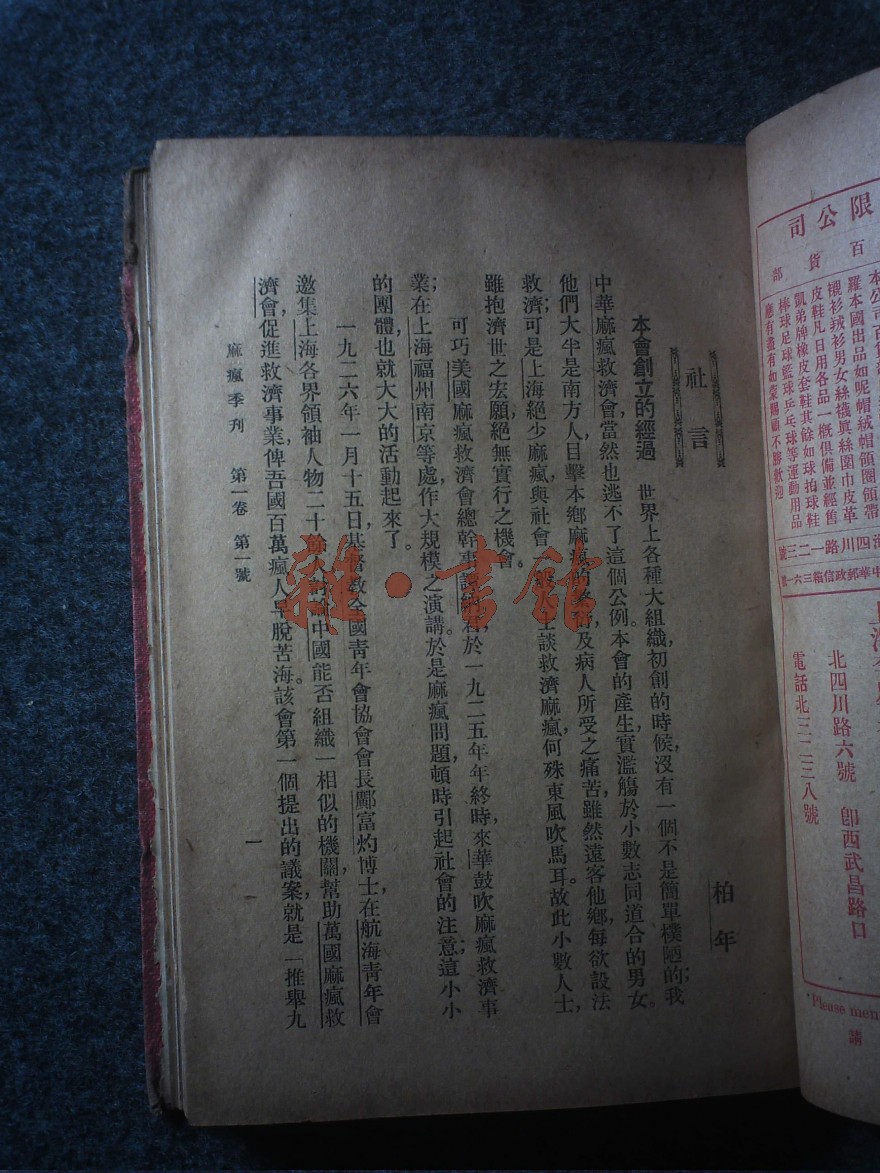 限公司
百貨部
羅本國出品如呢帽絨帽領圈領帶
襯衫絨衫男女絲襪眞絲圍巾皮革
皮鞋凡日用各品一概俱備並經售
凱弟牌橡皮套鞋其餘如球拍球鞋
棒球足球籃球乒乓球等運動用品
應有盡有如蒙賜顧不勝歡迎
海四川路一二三號
中華郵政信箱三六一號
上海
北四川路六號 卽西武昌路口
電話北三二二三八號
Please men
請
柏年
社言
本會創立的經過 世界上各種大組織,初創的時候,沒有一個不是簡單樸陋的;我
中華麻瘋救濟會,當然也逃不了這個公例。本會的產生,實濫觴於小數志同道合的男女。
他們大半是南方人,目擊本鄉麻瘋的及病人所受之痛苦,雖然遠客他鄉,每欲設法
救濟;可是上海絕少麻瘋,與社會一士談救濟麻瘋,何殊東風吹馬耳。故此小數人士,
雖抱濟世之宏願,絕無實行之機會。
可巧美國麻瘋救濟會總幹事譚納君,於一九二五年年終時,來華鼓吹麻瘋救濟事
業;在上海福州南京等處,作大規模之演講。於是麻瘋問題,頓時引起社會的注意;這小小
的團體,也就大大的活動起來了。
一九二六年一月十五日,基督教全國靑年會協會會長鄺富灼博士,在航海靑年會
邀集上海各界領袖人物二十餘人,討論中國能否組織一相似的機關,幫助萬國麻瘋救
濟會,促進救濟事業,俾吾國百萬瘋人早脫苦海。該會第一個提出的議案,就是「推舉九
麻瘋季刊 第一卷 第一號
一
雜·書館